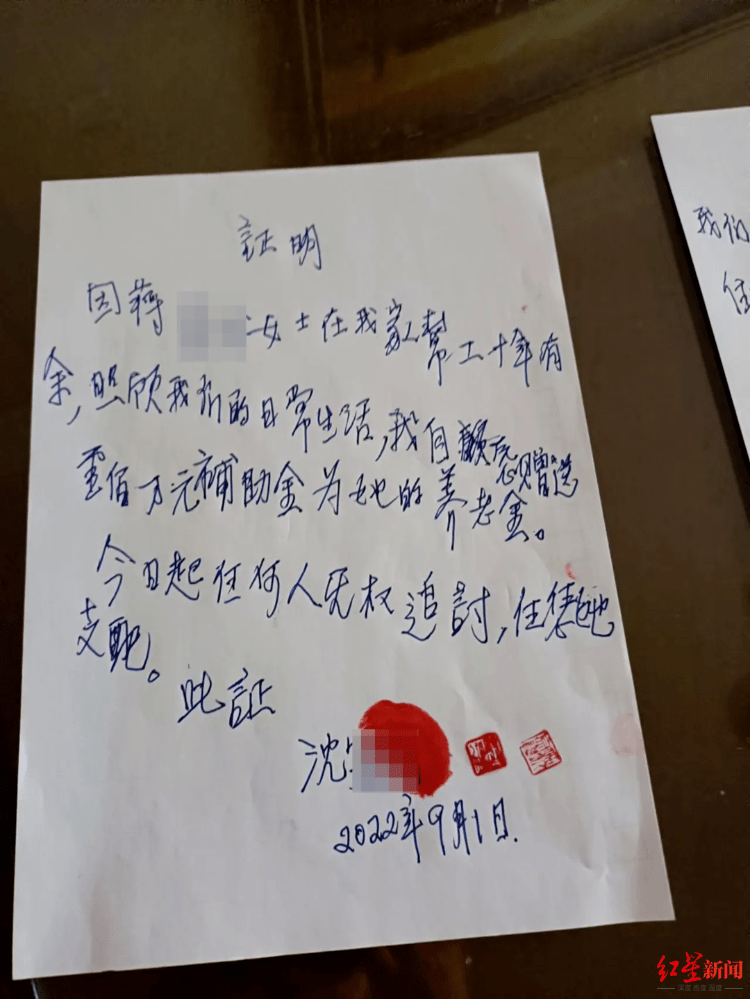 証明
因蒋 女士在我家帮工十年有
余,照顾我们的日常生活,我自願无偿赠送
壹佰万元補助金为她的养老金。
今日起任何人无权追討,任凭她
支配。
此証
沈
2022年9月1日.
我们
红星新闻
深度 态度 温度